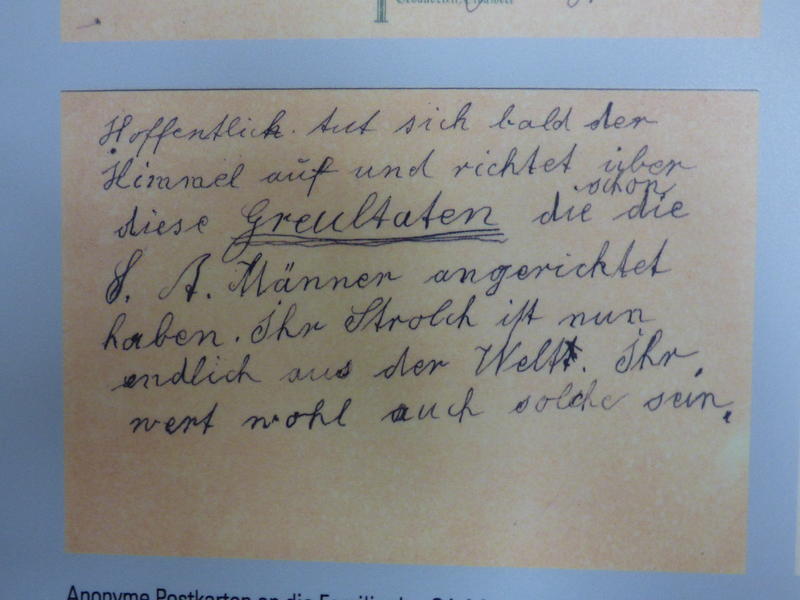 Hoffentlich. tut sich bald der
Himmel auf und richtet über
schon
diese Greultaten die die
S. A. Männer angerichtet
haben. Ihr Strolch ist nun
endlich aus der Welt. Ihr
wert wohl auch solche sein.
Anonyme Postkarten an die